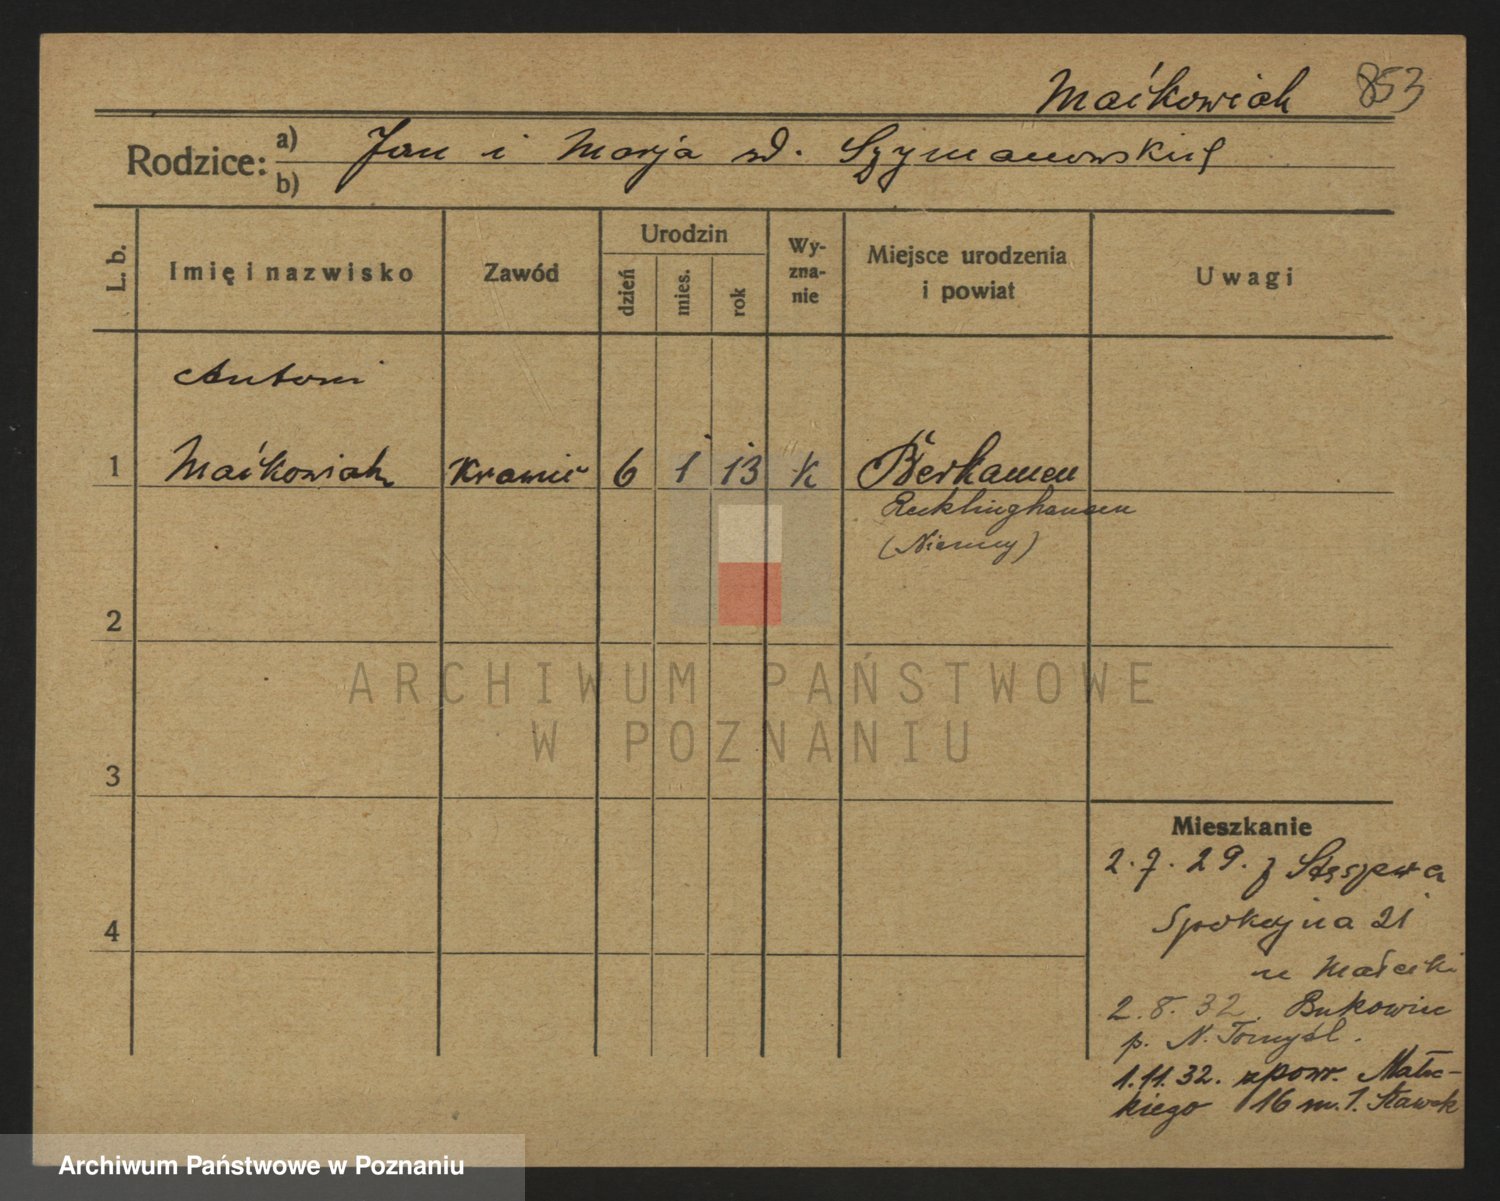 Maćkowiak 853
Rodzice: a) b) Jan i Marja zd. Szymanowskich
L. b. Imię i nazwisko Zawód Urodzin dzień mies. rok Wy-zna-nie Miejsce urodzenia i powiat Uwagi
Antoni
1 Maćkowiak krawiec 6 1 13 k Berkamen
Recklinghausen
(Niemcy)
2
ARCHIWUM PAŃSTWOWE
W POZNANIU
3
Mieszkanie
2.7.29. z Stęszewa
4 Spokojna 21
u Małecki
2.8.32. Bukowiec
p. N. Tomyśl.
1.11.32. zpowr. Małec-
kiego 16 m. 1. Sławek
Archiwum Państwowe w Poznaniu